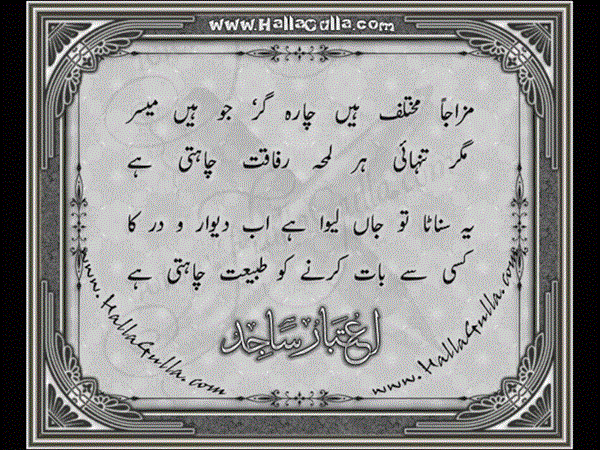 www.HallaGulla.com
مزاجاً مختلف ہیں چارہ گر جو ہیں میسر
مگر تنہائی ہر لمحہ رفاقت چاہتی ہے
یہ سناٹا تو جاں لیوا ہے اب دیوار و در کا
کسی سے بات کرنے کو طبیعت چاہتی ہے
اعتبار ساجد
www.HallaGulla.com
www.HallaGulla.com